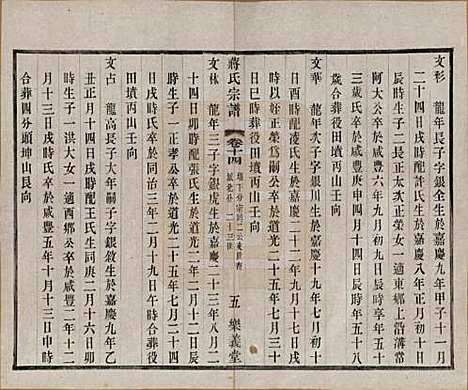 文杉 龍年長子字銀全生於嘉慶九年甲子十一月
二十四日戌時配許氏生於嘉慶八年正月初十日
辰時生子二長正太次正榮女一適東鄉上沿溝常
阿大公卒於咸豐六年九月初九日戌時氏卒於同
三歲氏卒於咸豐十年庚申四月十四日辰時五十八
歲合葬役田墳丙山壬向
文華 龍年次子字銀川生於嘉慶十九年七月初八
日酉時配凌氏生於嘉慶二十二年七月初七日
時以姪正榮為嗣公卒於道光二十五年七月三十
日巳時葬役田墳丙山壬向
蔣氏宗譜
卷之十四
五
樂義堂
文林 龍年三子字銀虎生於嘉慶二十三年八月二
十四日卯時配張氏生於道光二年二月初八日卯
時生子一正孝公卒於道光二十五年七月二十四
日戌時氏卒於同治三年二月十九日午時合葬役
田丙山壬向
文占 龍高長子大年嗣子字銀敘生於嘉慶九年乙
丑正月十四日戌時配王氏生同庚二月十六日卯
時生子一洪大女一適西鄉公卒於咸豐二年十二
月十三日戌時氏卒於咸豐五年十月十三日申時
合葬四分頭坤山艮向